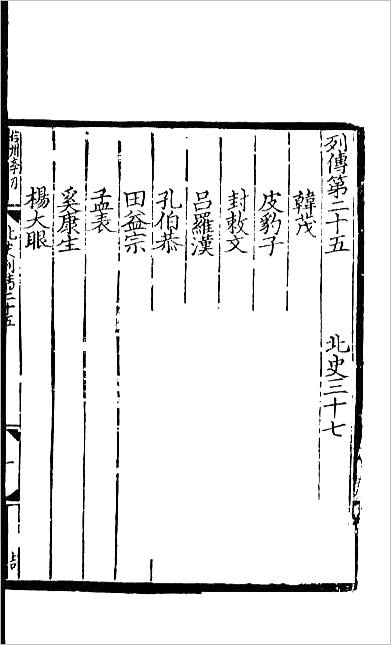 列傳第二十五　北史三十七
韓茂
皮豹子
封敕文
呂羅漢
孔伯恭
田益宗
孟表
奚康生
楊大眼
北史列傳二十五